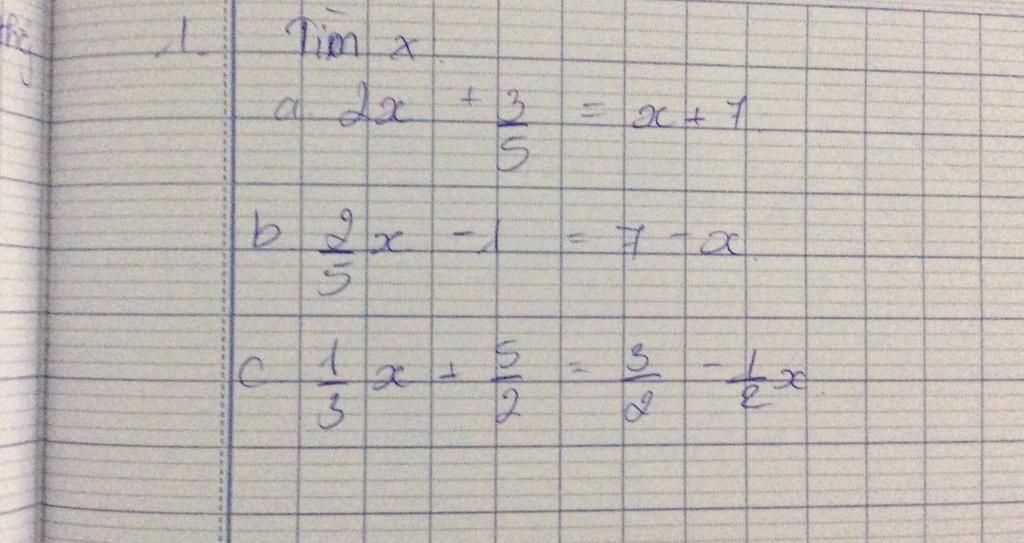 1. Tìm x
a 2x + 3/5 = x + 7
b 2/5 x - 1 = 7 - x
c 1/3 x + 5/2 = 3/2 - 1/2 x